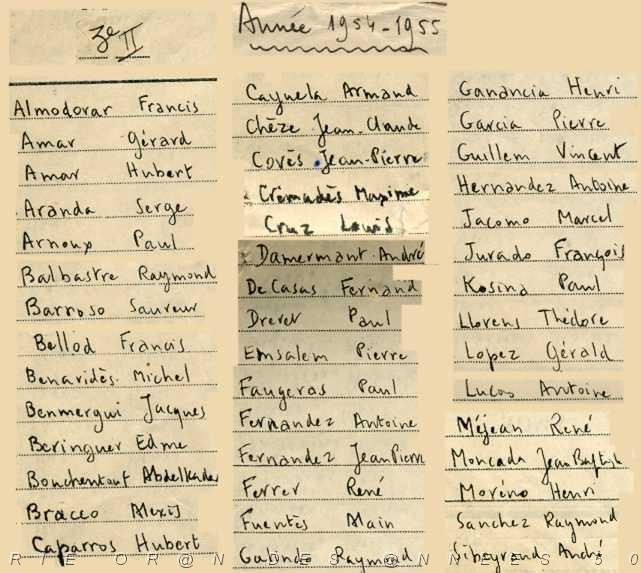 3e II
Almodovar Francis
Amar Gérard
Amar Hubert
Aranda Serge
Arnoux Paul
Balbastre Raymond
Barroso Sauveur
Bellod Francis
Benavidès Michel
Benmergui Jacques
Beringuer Edme
Bouchentouf Abdelkader
Bracco Alexis
Caparros Hubert
Année 1954-1955
Cayuela Armand
Chèze Jean-Claude
Covès Jean-Pierre
Crémadès Maxime
Cruz Louis
Damermant André
De Casas Fernand
Drevet Paul
Emsalem Pierre
Faugeras Paul
Fernandez Antoine
Fernandez Jean Pierre
Ferrer René
Fuentès Alain
Galindo Raymond
Ganancia Henri
Garcia Pierre
Guillem Vincent
Hernandez Antoine
Jacomo Marcel
Jurado François
Kosina Paul
Llorens Théodore
Lopez Gérald
Lucas Antoine
Méjean René
Moncada Jean Baptiste
Moréno Henri
Sanchez Raymond
Sibeyrand André
RIE OR@N DES @NNEES 50